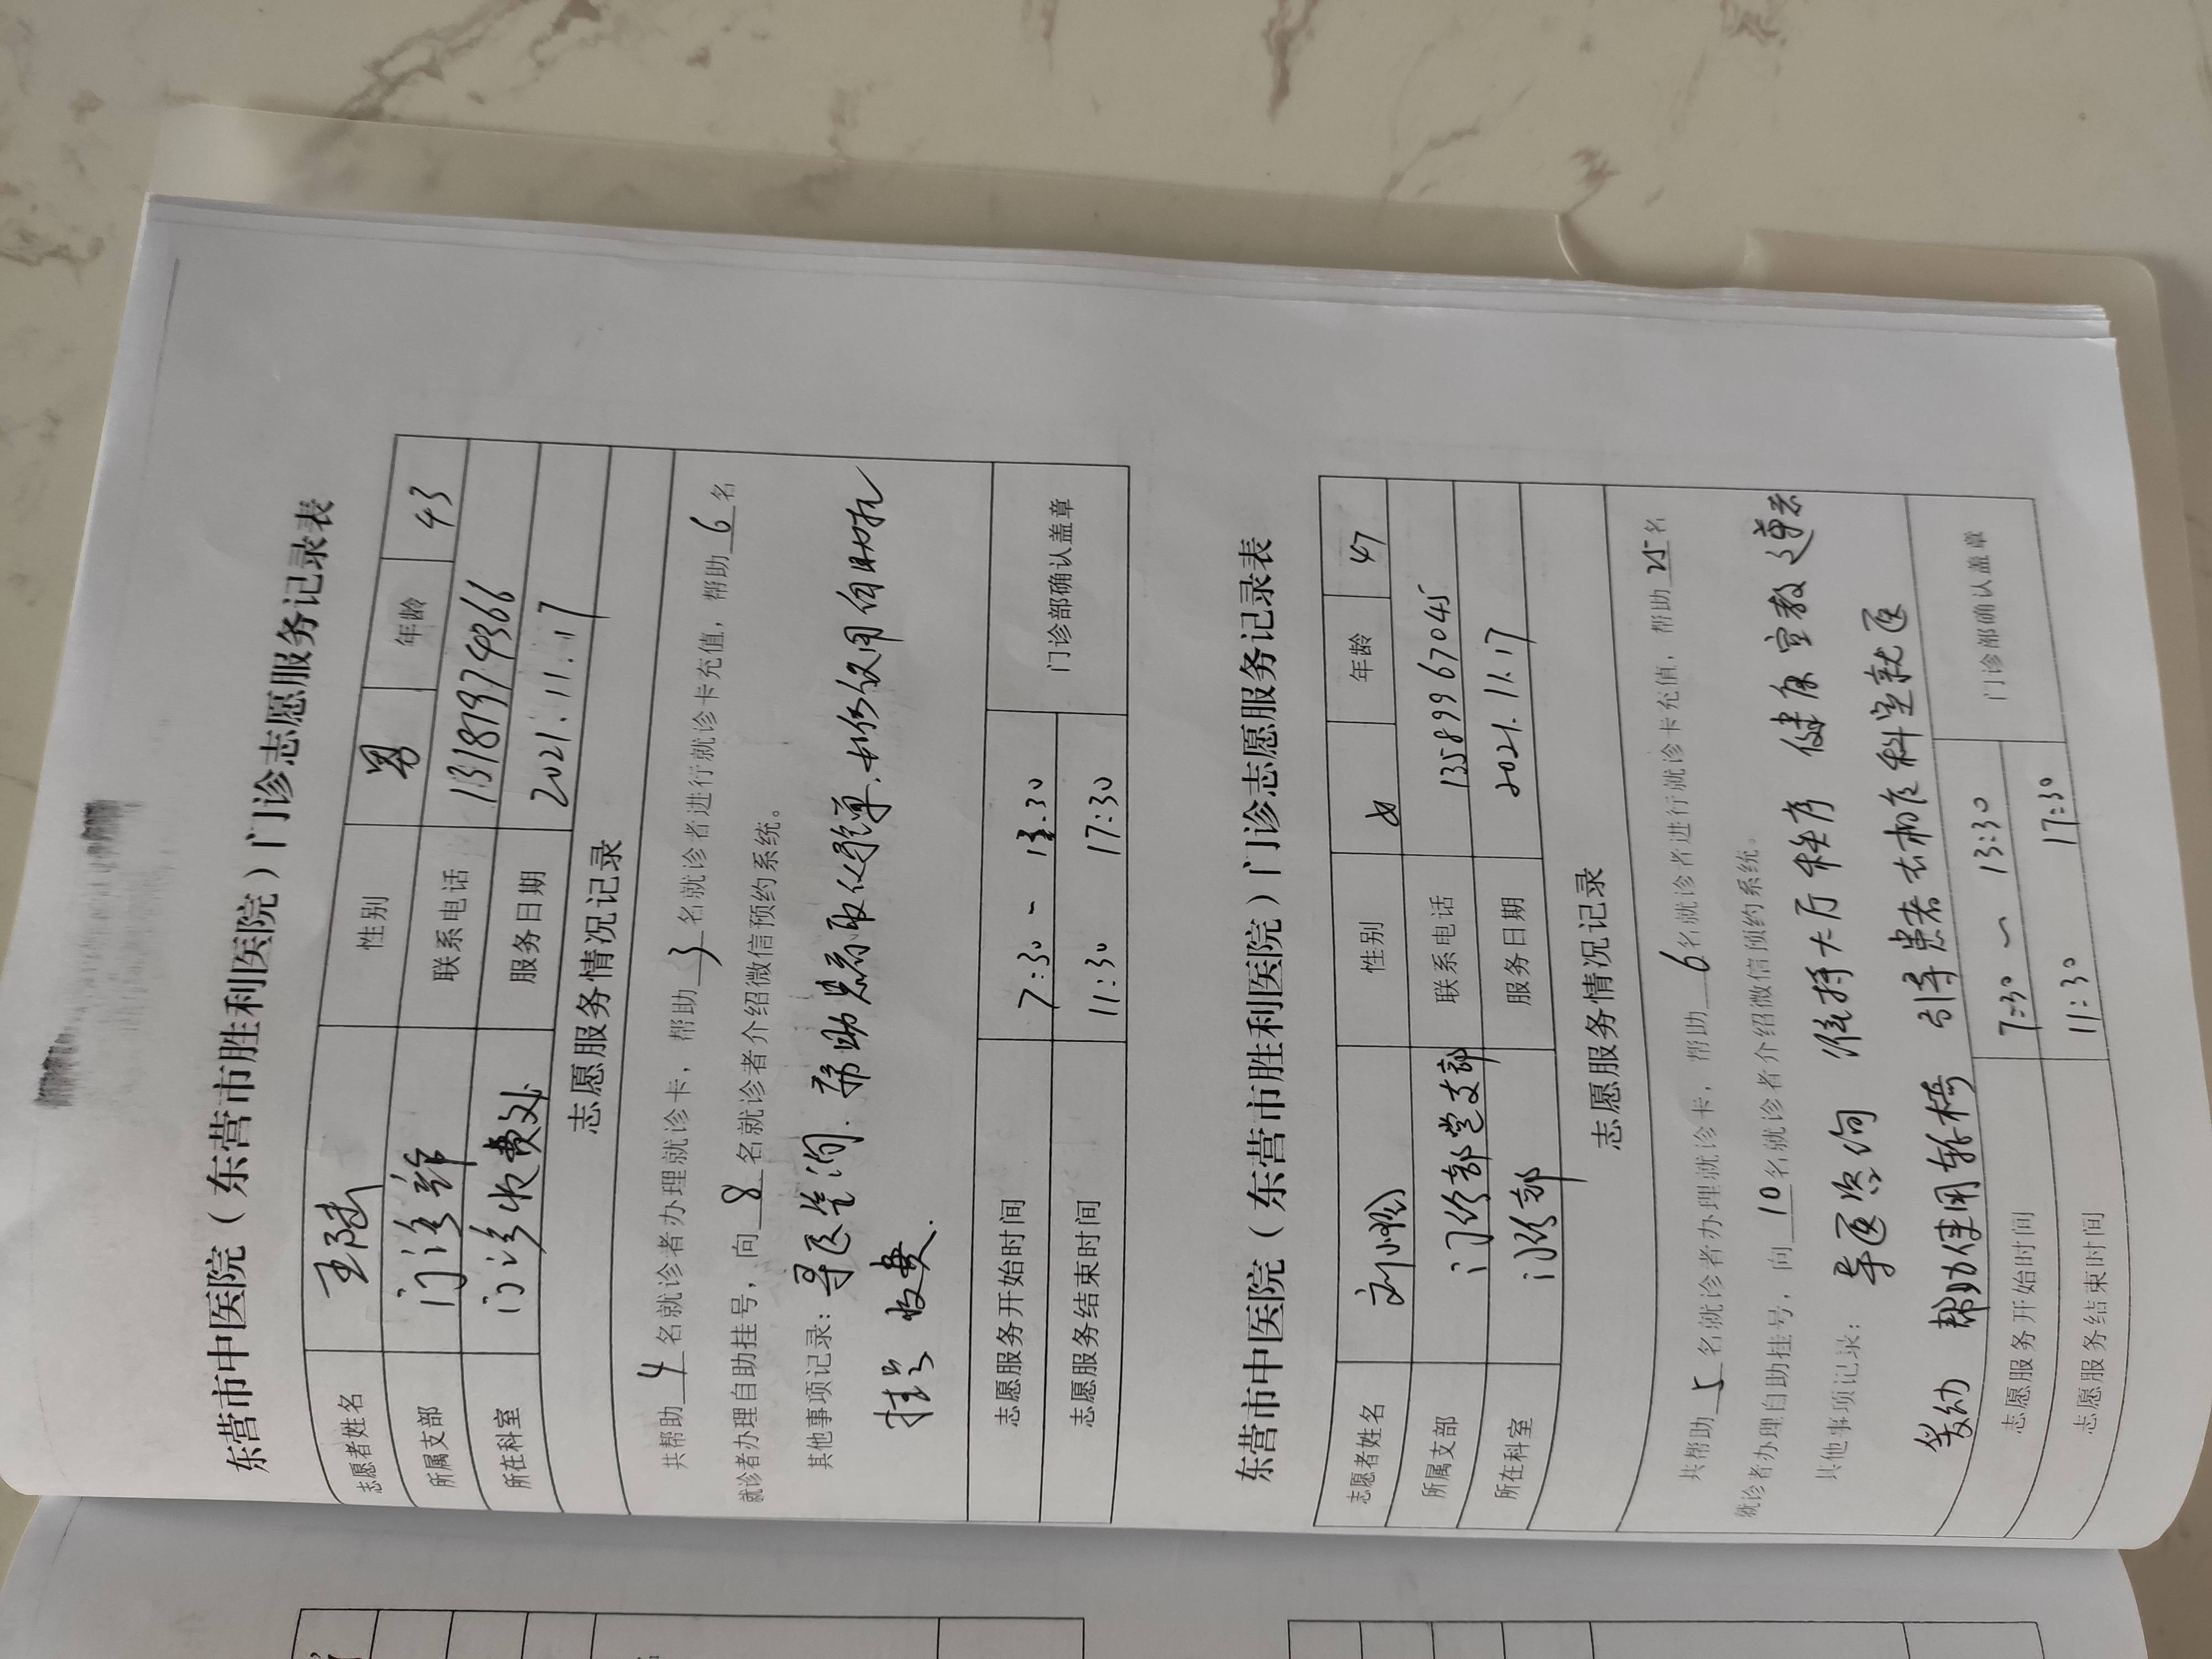 东营市中医院（东营市胜利医院）门诊志愿服务记录表
志愿者姓名 王陆 性别 男 年龄 43
所属支部 门诊 联系电话 13181974366
所在科室 门诊收费处 服务日期 2021.11.17
志愿服务情况记录
共帮助 4 名就诊者办理就诊卡，帮助 3 名就诊者进行就诊卡充值，帮助 6 名
就诊者办理自助挂号，向 8 名就诊者介绍微信预约系统。
其他事项记录：导医咨询. 帮助患者取化验单. 使用自助机
挂号 收费.
志愿服务开始时间 7:30 - 13.30 门诊部确认盖章
志愿服务结束时间 11:30 17:30
东营市中医院（东营市胜利医院）门诊志愿服务记录表
志愿者姓名 刘小玲 性别 女 年龄 47
所属支部 门诊部党支部 联系电话 13589967045
所在科室 门诊部 服务日期 2021.11.17
志愿服务情况记录
共帮助 5 名就诊者办理就诊卡，帮助 6 名就诊者进行就诊卡充值，帮助 25 名
就诊者办理自助挂号，向 10 名就诊者介绍微信预约系统。
其他事项记录： 导医咨询 维持大厅秩序 健康宣教
帮助使用轮椅 引导患者去相应科室就医
志愿服务开始时间 7:30 ~ 13:30 门诊部确认盖章
志愿服务结束时间 11:30 17:30